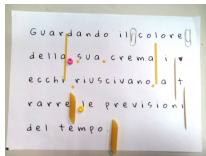 Guardando il colore
della sua crema i v
ecchi riuscivano a t
rarre le previsioni
del tempo